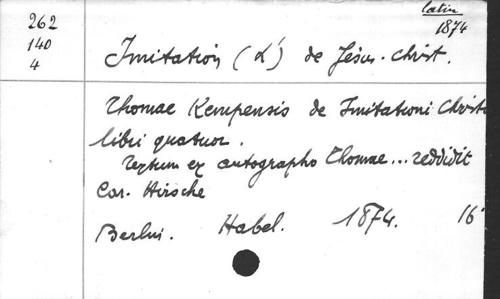 262
140
4
latin
1874
Imitation (L') de Jésus-Christ.
Thomae Kempensis de Imitationi Christi
libri quatuor.
Textum ex autographo Thomae... reddidit
Car. Hirsche
Berlin. Habel. 1874. 16°